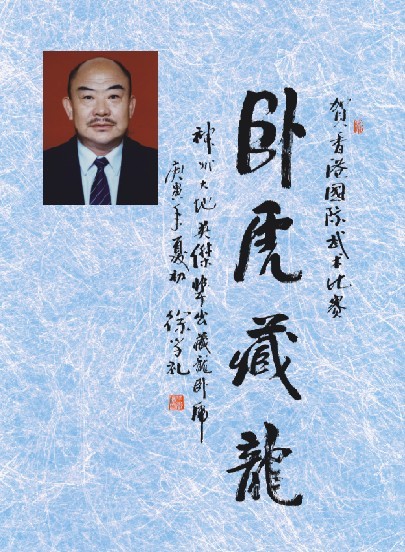 贺香港國际武术比赛
卧虎藏龍
神州大地英傑輩出藏龍卧虎
庚寅年夏初
徐学礼